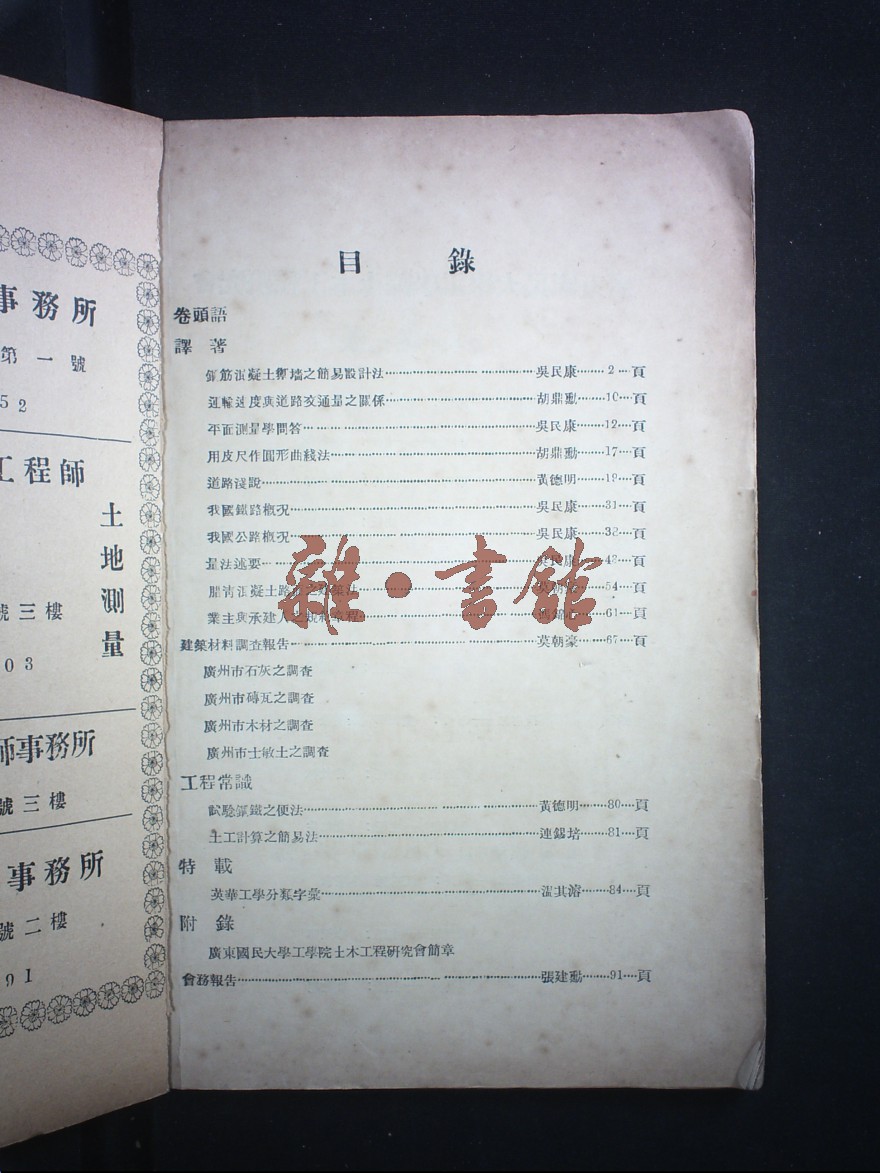 事務所
第一號
52
工程師
土地測量
號三樓
03
師事務所
號三樓
事務所
號二樓
91
目錄
卷頭語
譯著
鋼筋混凝土牆之簡易設計法 吳民康 2 頁
運輸速度與道路交通量之關係 胡鼎勳 10 頁
平面測量學問答 吳民康 12 頁
用皮尺作圓形曲綫法 胡鼎勳 17 頁
道路淺說 黃德明 19 頁
我國鐵路概况 吳民康 31 頁
我國公路概况 吳民康 頁
量法述要 吳民康 頁
凝土路 54 頁
業主與承建人之規 章程 61 頁
建築材料調查報告 莫朝豪 67 頁
廣州市石灰之調查
廣州市磚瓦之調查
廣州市木材之調查
廣州市士敏土之調查
工程常識
試驗鋼鐵之便法 黃德明 80 頁
土工計算之簡易法 連錫培 81 頁
特載
英華工學分類字彙 其濬 84 頁
附錄
廣東國民大學工學院土木工程研究會簡章
會務報告 張建勳 91 頁
雜·書館